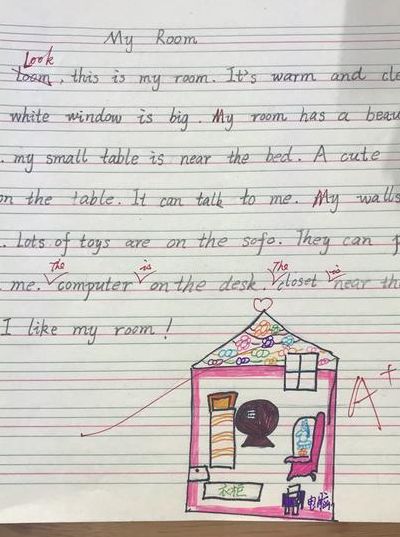 My Room
Look
, this is my room. It's warm and cle
white window is big. My room has a beau
. my small table is near the bed. A cute
on the table. It can talk to me. My walls
. Lots of toys are on the sofo. They can p
me. The computer is on the desk. The closet is near the
I like my room!
A+
衣柜
电脑